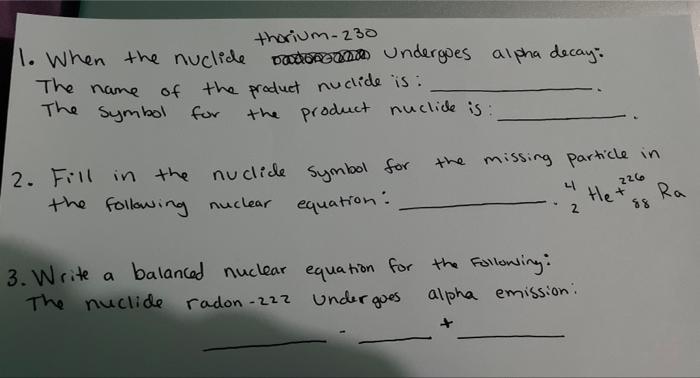 thorium-230
1. When the nuclide undergoes alpha decay:
The name of the product nuclide is: ____________.
The symbol for the product nuclide is: ____________.
2. Fill in the nuclide symbol for the missing particle in
the following nuclear equation: ____________. ⁴₂He + ²²⁶₈₈Ra
3. Write a balanced nuclear equation for the following:
The nuclide radon-222 undergoes alpha emission:
________ - ______ + ________